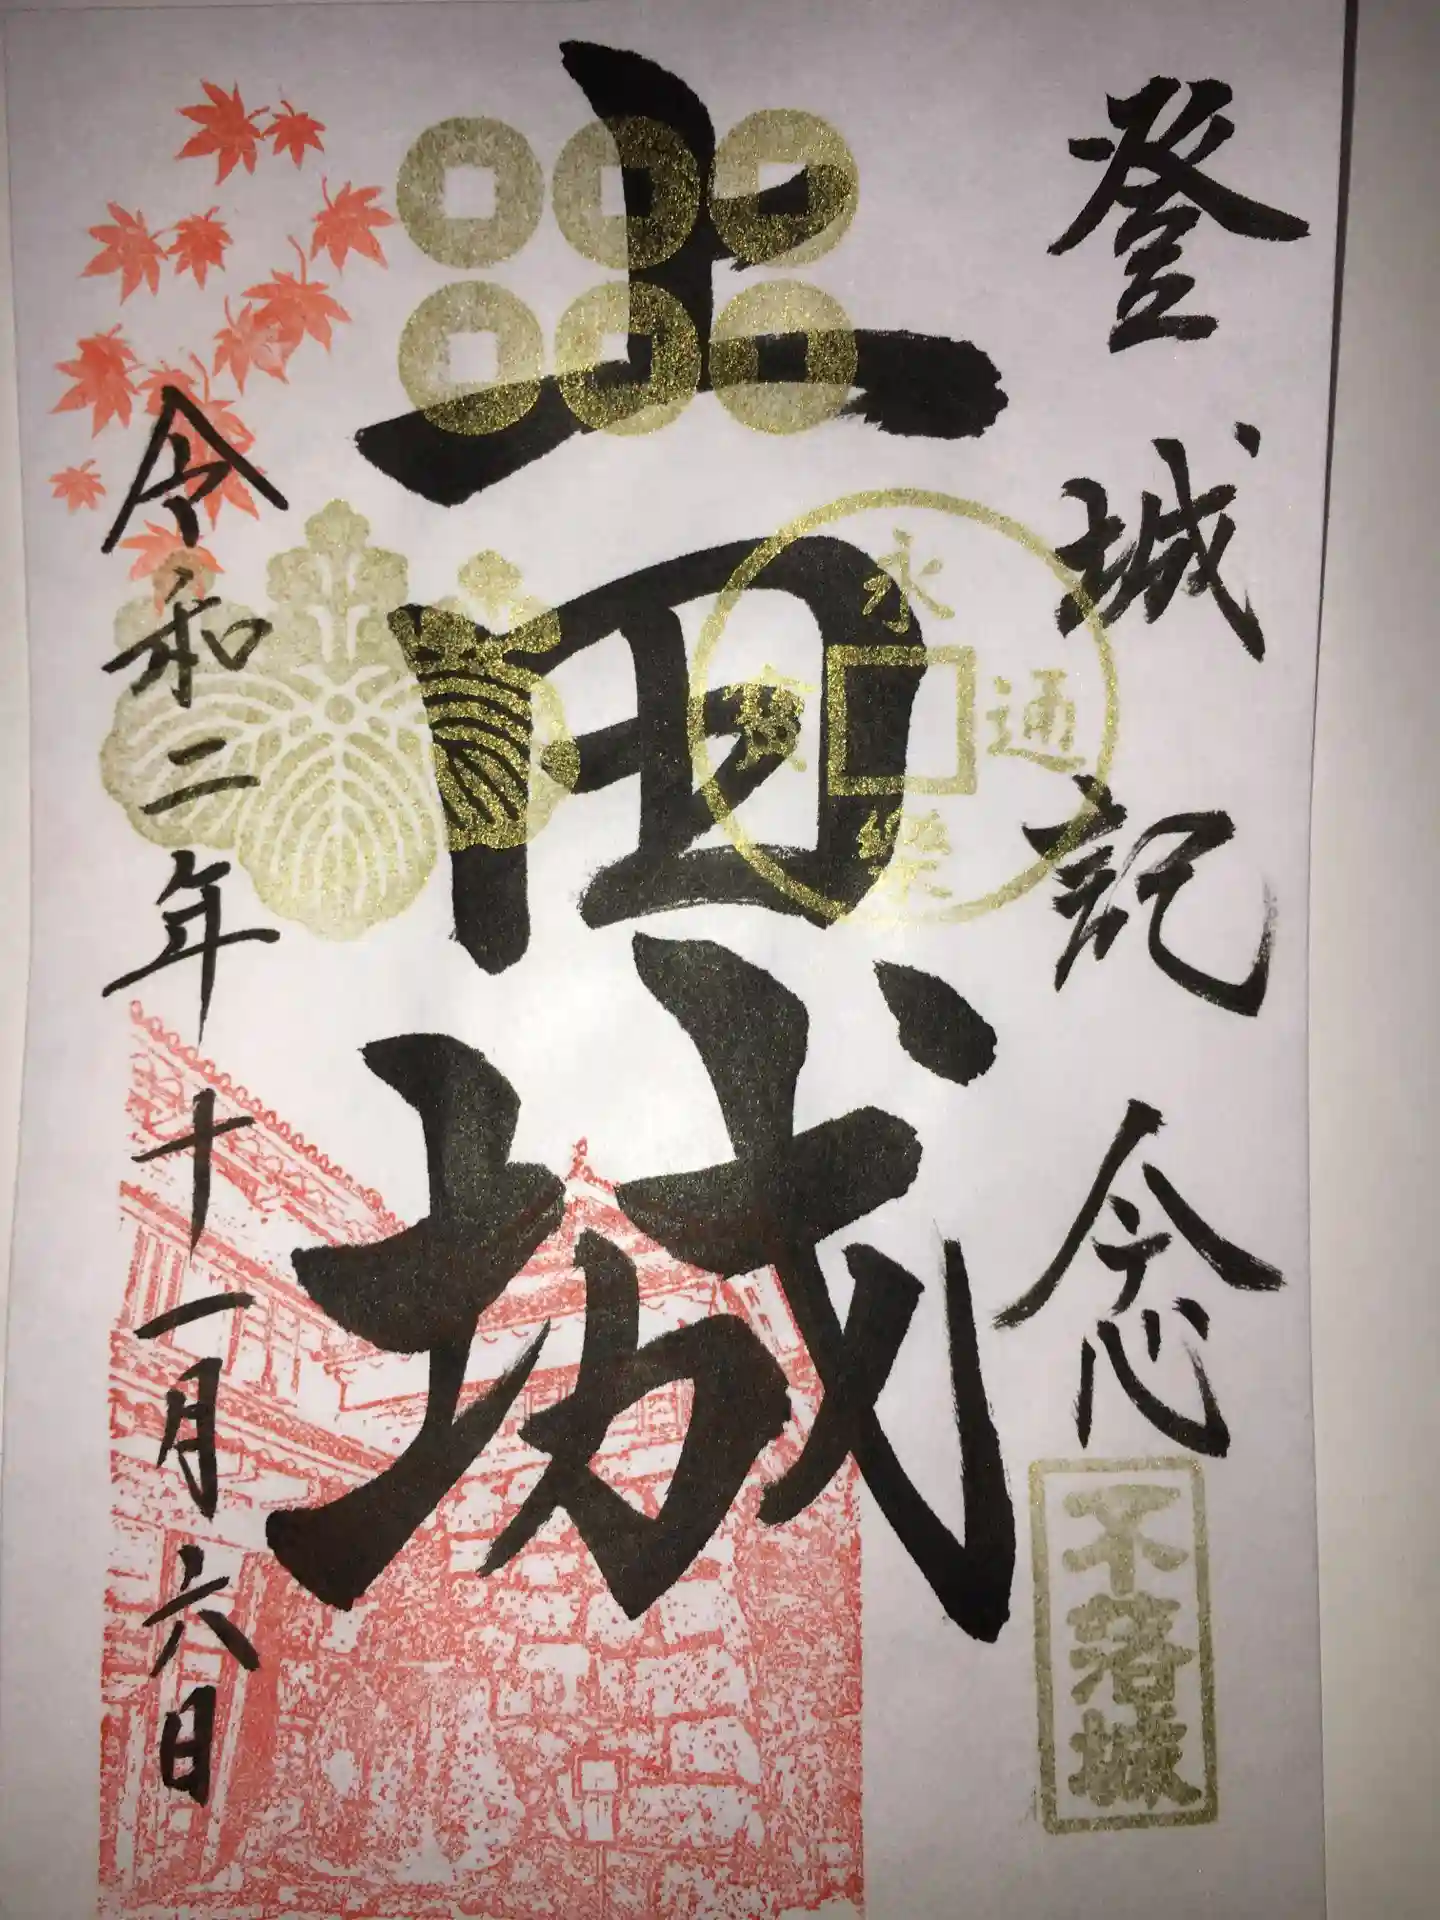 登城記念
不落城
上田城
永通樂寳
令和二年十一月六日